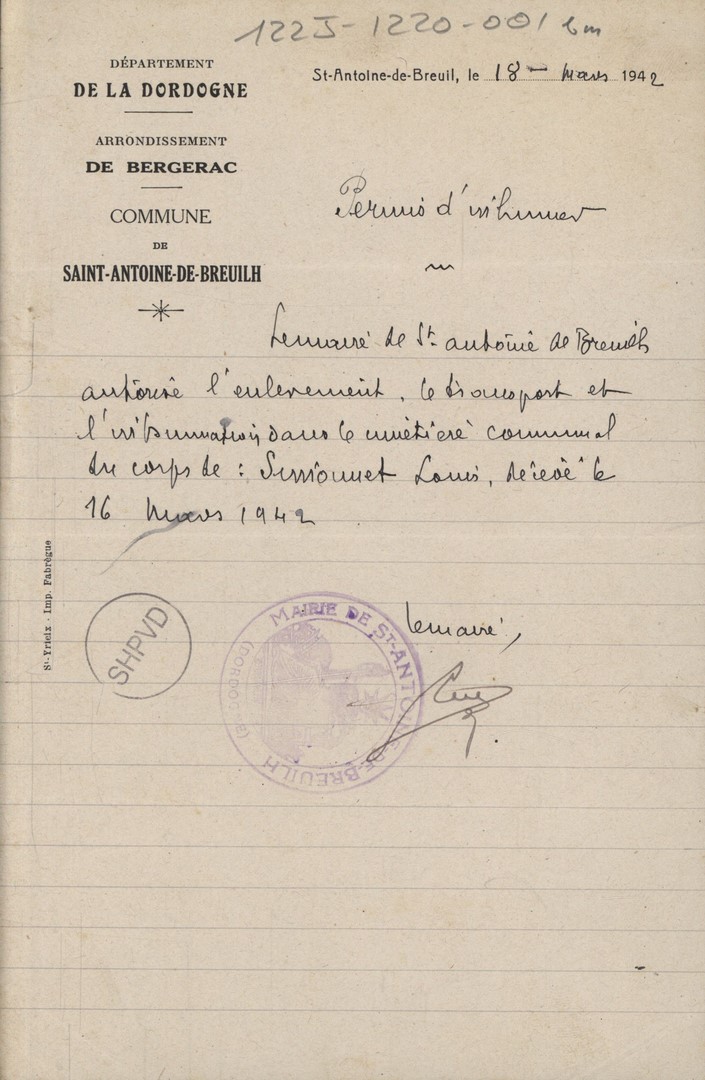 122J-1220-001 bm
DÉPARTEMENT
DE LA DORDOGNE
ARRONDISSEMENT
DE BERGERAC
COMMUNE
DE
SAINT-ANTOINE-DE-BREUILH
St-Antoine-de-Breuil, le 18 Mars 1942
Permis d'inhumer
Le maire de St. antoine de Breuilh
autorise l'enlevement, le transport et
l'inhumation dans le cimetière communal
du corps de : Louis, décédé le
16 Mars 1942
Le maire,
St-Yrieix - Imp. Fabrègue
SHPVD
MAIRIE DE ST-ANTOINE-DE-BREUILH